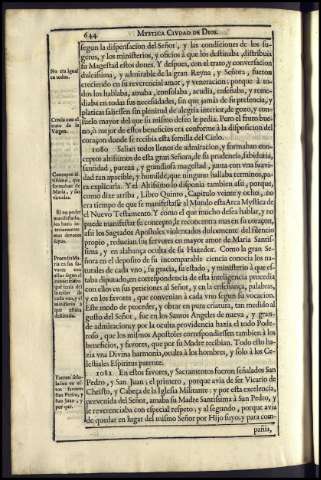 644 MYSTICA CIVDAD DE DIOS.
segun la dispensacion del Señor, y las condiciones de los su-
getos, y los ministerios, y oficios à que los destinava, distribuìa
su Magestad estos dones. Y despues, con el trato, y conversacion
dulcissima, y admirable de la gran Reyna, y Señora, fueron
creciendo en su reverencial amor, y veneracion; porque à to-
dos los hablava, amava, consolava, acudia, enseñava, y reme-
diava en todas sus necessidades, sin que jamàs de su presencia, y
platicas saliessen sin plenitud de alegria interior, de gozo, y con-
suelo mayor del que su mismo deseo le pedia. Pero el fruto bue-
no, ò mejor de estos beneficios era conforme à la disposicion del
coraçon donde se recibia esta semilla del Cielo.
1080. Salian todos llenos de admiracion, y formavan con-
ceptos altissimos de esta gran Señora, de su prudencia, sabiduria,
santidad, pureza, y grandiosa magestad, junta con vna suavi-
dad tan apacible, y humilde, que ninguno hallava terminos, pa-
ra explicarla. Y el Altissimo disponia tambien assi, porque,
como dize arriba, Libro Quinto, Capitulo veinte y ocho, no
era tiempo de que se manifestasse al Mundo esta Arca Myssica de
el Nuevo Testamento. Y como el que mucho desea hablar, y no
puede manifestar su concepto, le reconcentra mas en su coraçon,
assi los Sagrados Apostoles violentados dulcemente del silencio
proprio, reducian sus fervores en mayor amor de Maria Santis-
sima, y en alabança oculta de su Hazedor. Como la gran Se-
ñora en el deposito de su incomparable ciencia conocia los na-
turales de cada vno, su gracia, su estado, y ministerio à que es-
tava diputado, en correspondencia de esta inteligencia procedia
con ellos en sus peticiones al Señor, y en la enseñança, palabras,
y en los favores, que convenian à cada vno segun su vocacion.
Este modo de proceder, y obrar en pura criatura, tan medido al
gusto del Señor, fue en los Santos Angeles de nueva, y gran-
de admiracion; y por la oculta providencia hazia el todo Pode-
roso, que los mismos Apostoles correspondiessen tambien à los
beneficios, y favores, que por su Madre recibian. Todo esto ha-
zia vna Divina harmonia, oculta à los hombres, y sólo à los Ce-
lestiales Espiritus patente.
1081. En estos favores, y Sacramentos fueron señalados San
Pedro, y San Juan; el primero, porque avia de ser Vicario de
Christo, y Cabeça de la Iglesia Militante; y por esta excelencia,
prevenida del Señor, amava su Madre Santissima à San Pedro, y
le reverenciava con especial respeto; y al segundo, porque avia
de quedar en lugar del mismo Señor por Hijo suyo, y para com-
pañia,
No era igual
en todos.